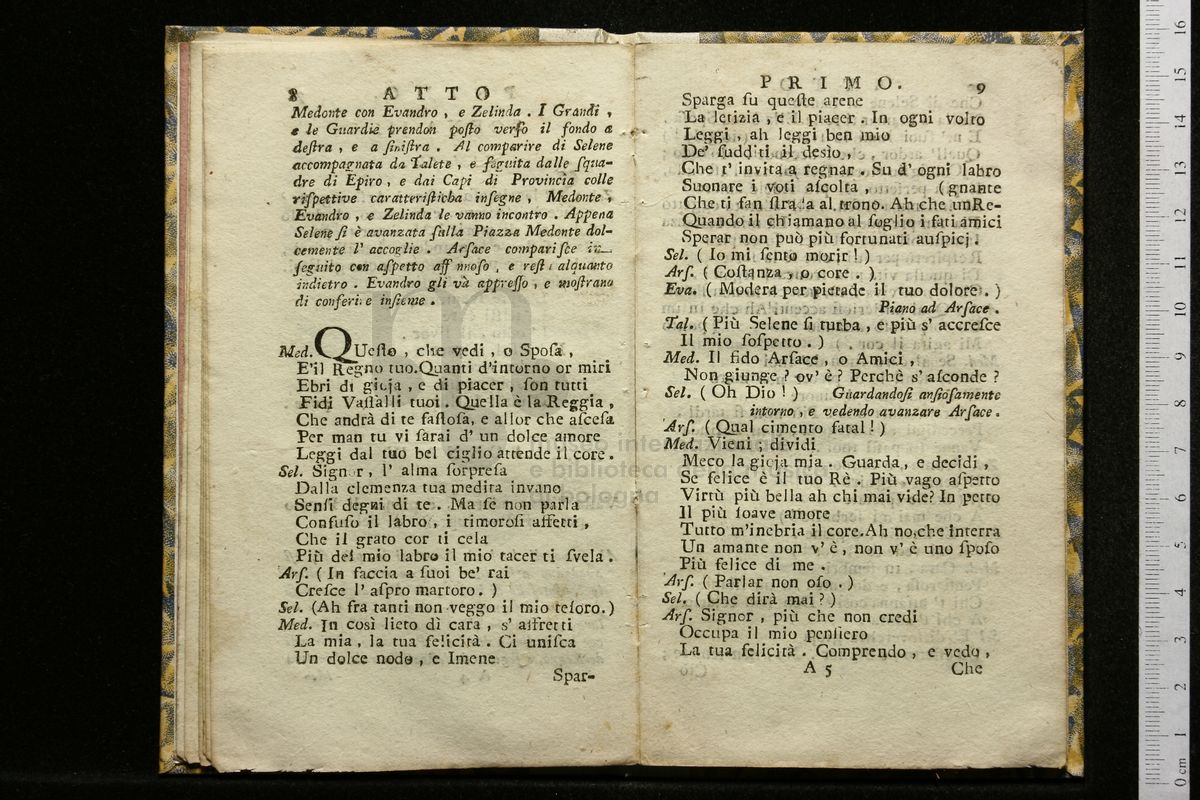 8 ATTO
Medonte con Evandro , e Zelinda . I Grandi ,
e le Guardie prendon poſto verſo il fondo a
deſtra , e a ſiniſtra . Al comparire di Selene
accompagnata da Talete , e ſeguita dalle ſqua-
dre di Epiro , e dai Capi di Provincia colle
riſpettive caratteriſticha inſegne , Medonte ,
Evandro , e Zelinda le vanno incontro . Appena
Selene ſi è avanzata ſulla Piazza Medonte dol-
cemente l' accoglie . Arſace compariſce in
ſeguito con aſpetto aff nnoſo , e reſta alquanto
indietro . Evandro gli và appreſſo , e moſtrano
di conferire inſieme .
Med. QUeſto , che vedi , o Spoſa ,
E'il Regno tuo.Quanti d'intorno or miri
Ebri di gioja , e di piacer , ſon tutti
Fidi Vaſſalli tuoi . Quella è la Reggia ,
Che andrà di te faſtoſa, e allor che aſceſa
Per man tu vi ſarai d' un dolce amore
Leggi dal tuo bel ciglio attende il core .
Sel. Signor , l' alma ſorpreſa
Dalla clemenza tua medita invano
Senſi degni di te . Ma ſe non parla
Confuſo il labro , i timoroſi affetti ,
Che il grato cor ti cela
Più del mio labro il mio tacer ti ſvela .
Arſ. ( In faccia a ſuoi be' rai
Creſce l' aſpro martoro . )
Sel. (Ah fra tanti non veggo il mio teſoro.)
Med. In così lieto dì cara , s' affretti
La mia , la tua felicità . Ci uniſca
Un dolce nodo , e Imene
Spar-
PRIMO. 9
Sparga ſu queſte arene
La letizia , e il piacer . In ogni volto
Leggi , ah leggi ben mio
De' ſudditi il desìo ,
Che t' invita a regnar . Su d' ogni labro
Suonare i voti aſcolta , ( gnante
Che ti fan ſtrada al trono. Ah che unRe-
Quando il chiamano al ſoglio i fati amici
Sperar non può più fortunati auſpicj .
Sel. ( Io mi ſento morir ! )
Arſ. ( Coſtanza , o core . )
Eva. ( Modera per pietade il tuo dolore . )
Piano ad Arſace .
Tal. ( Più Selene ſi turba , e più s' accreſce
Il mio ſoſpetto . )
Med. Il fido Arſace , o Amici ,
Non giunge ? ov' è ? Perchè s' aſconde ?
Sel. ( Oh Dio ! ) Guardandoſi anſioſamente
intorno , e vedendo avanzare Arſace .
Arſ. ( Qual cimento fatal ! )
Med. Vieni ; dividi
Meco la gioja mia . Guarda , e decidi ,
Se felice è il tuo Rè . Più vago aſpetto
Virtù più bella ah chi mai vide? In petto
Il più ſoave amore
Tutto m'inebria il core.Ah no,che interra
Un amante non v' è , non v' è uno ſpoſo
Più felice di me .
Arſ. ( Parlar non oſo . )
Sel. ( Che dirà mai ? )
Arſ. Signor , più che non credi
Occupa il mio penſiero
La tua felicità . Comprendo , e vedo ,
A 5 Che